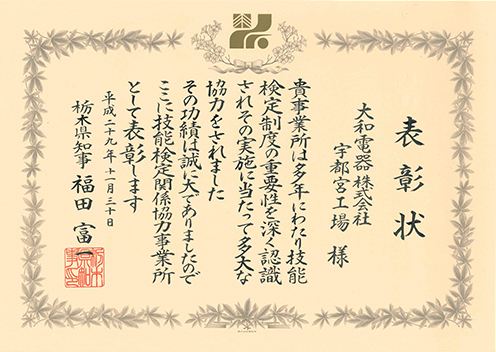 表彰状
大和電器株式会社
宇都宮工場 様
貴事業所は多年にわたり技能
検定制度の重要性を深く認識
されその実施に当たって多大な
協力をされました
その功績は誠に大でありましたので
ここに技能検定関係協力事業所
として表彰します
平成二十九年十一月三十日
栃木県知事 福田富一